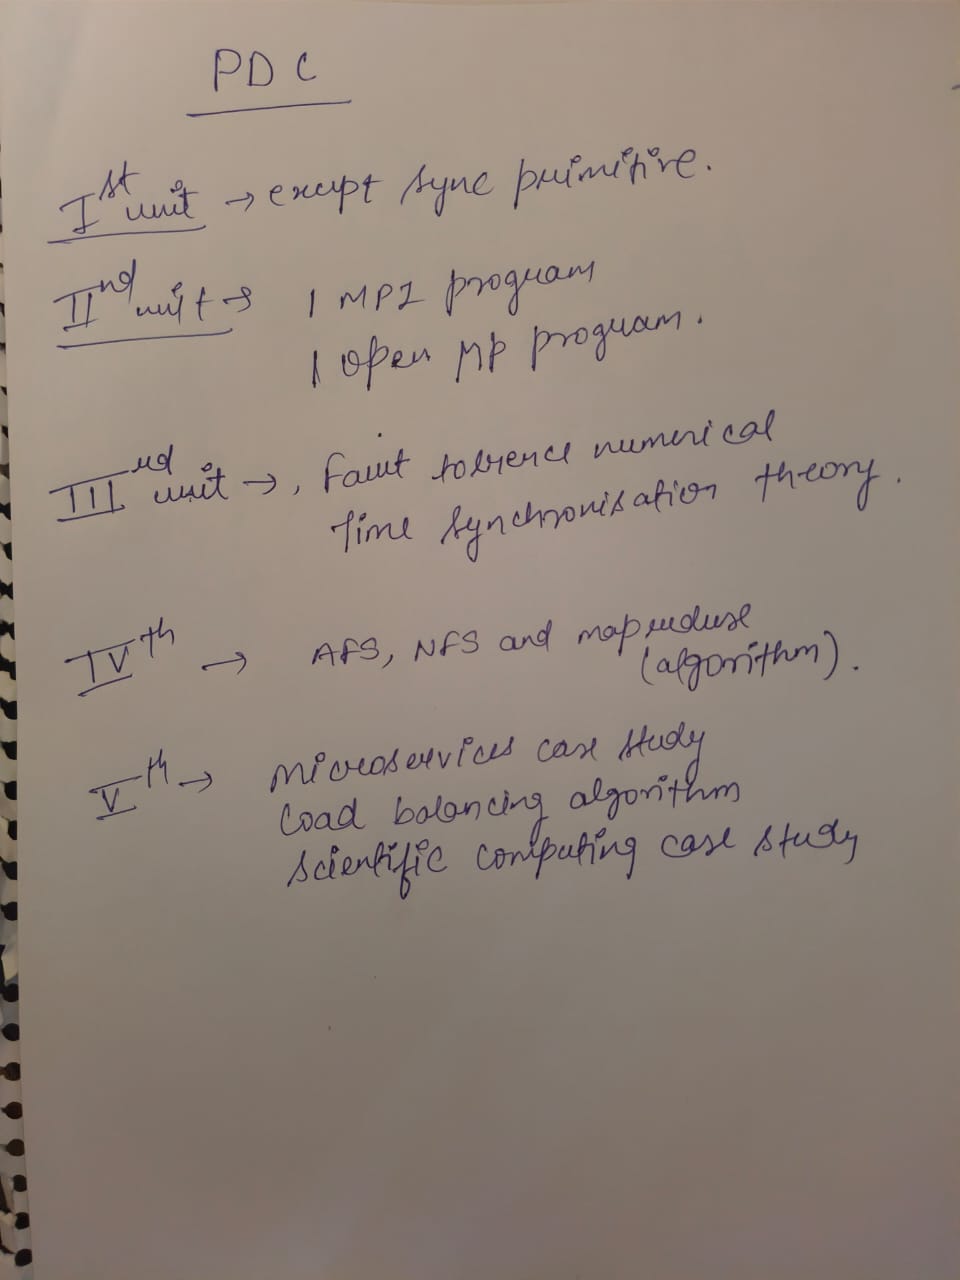 PDC
Ist unit → except sync primitive.
IInd unit → 1 MPI program
1 open MP program.
IIIrd unit →, Fault tolrence numerical
Time synchronisation theory.
IVth → AFS, NFS and mapreduse
(algorithm).
Vth → microservices case study
Load balancing algorithm
scientific computing case study